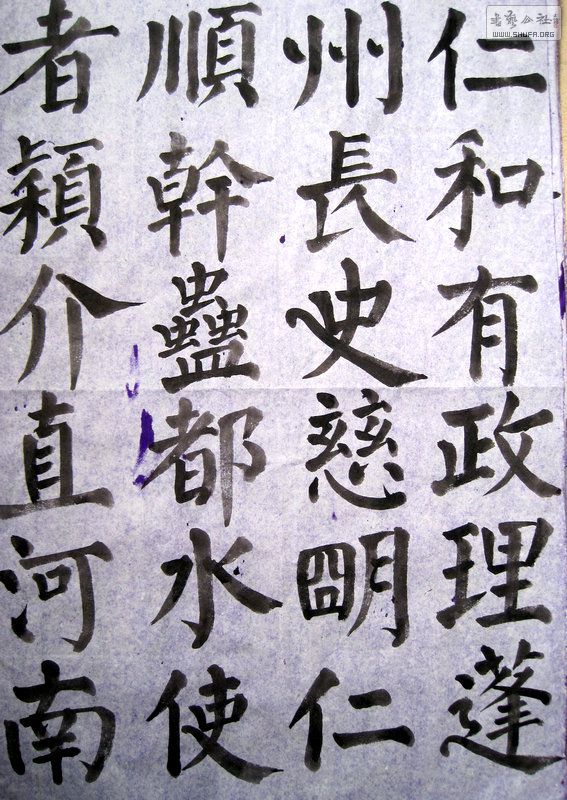 仁和有政理蓬
州長史慈明仁
順幹蠱都水使
者穎介直河南
书艺公社
WWW.SHUFA.ORG